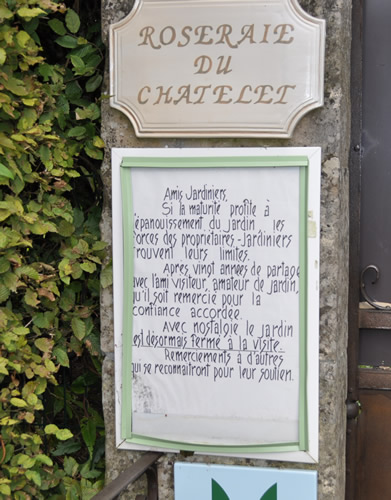 ROSERAIE
DU
CHATELET
Amis Jardiniers,
Si la maturité profite à
épanouissement du jardin les
forces des propriétaires-Jardiniers
rouvent leurs limites.
Après vingt années de partage
avec l'ami visiteur, amateur de jardin,
u'il soit remercié pour la
confiance accordée.
Avec nostalgie le jardin
est désormais fermé à la visite.
Remerciements à d'autres
ui se reconnaitront pour leur soutien.